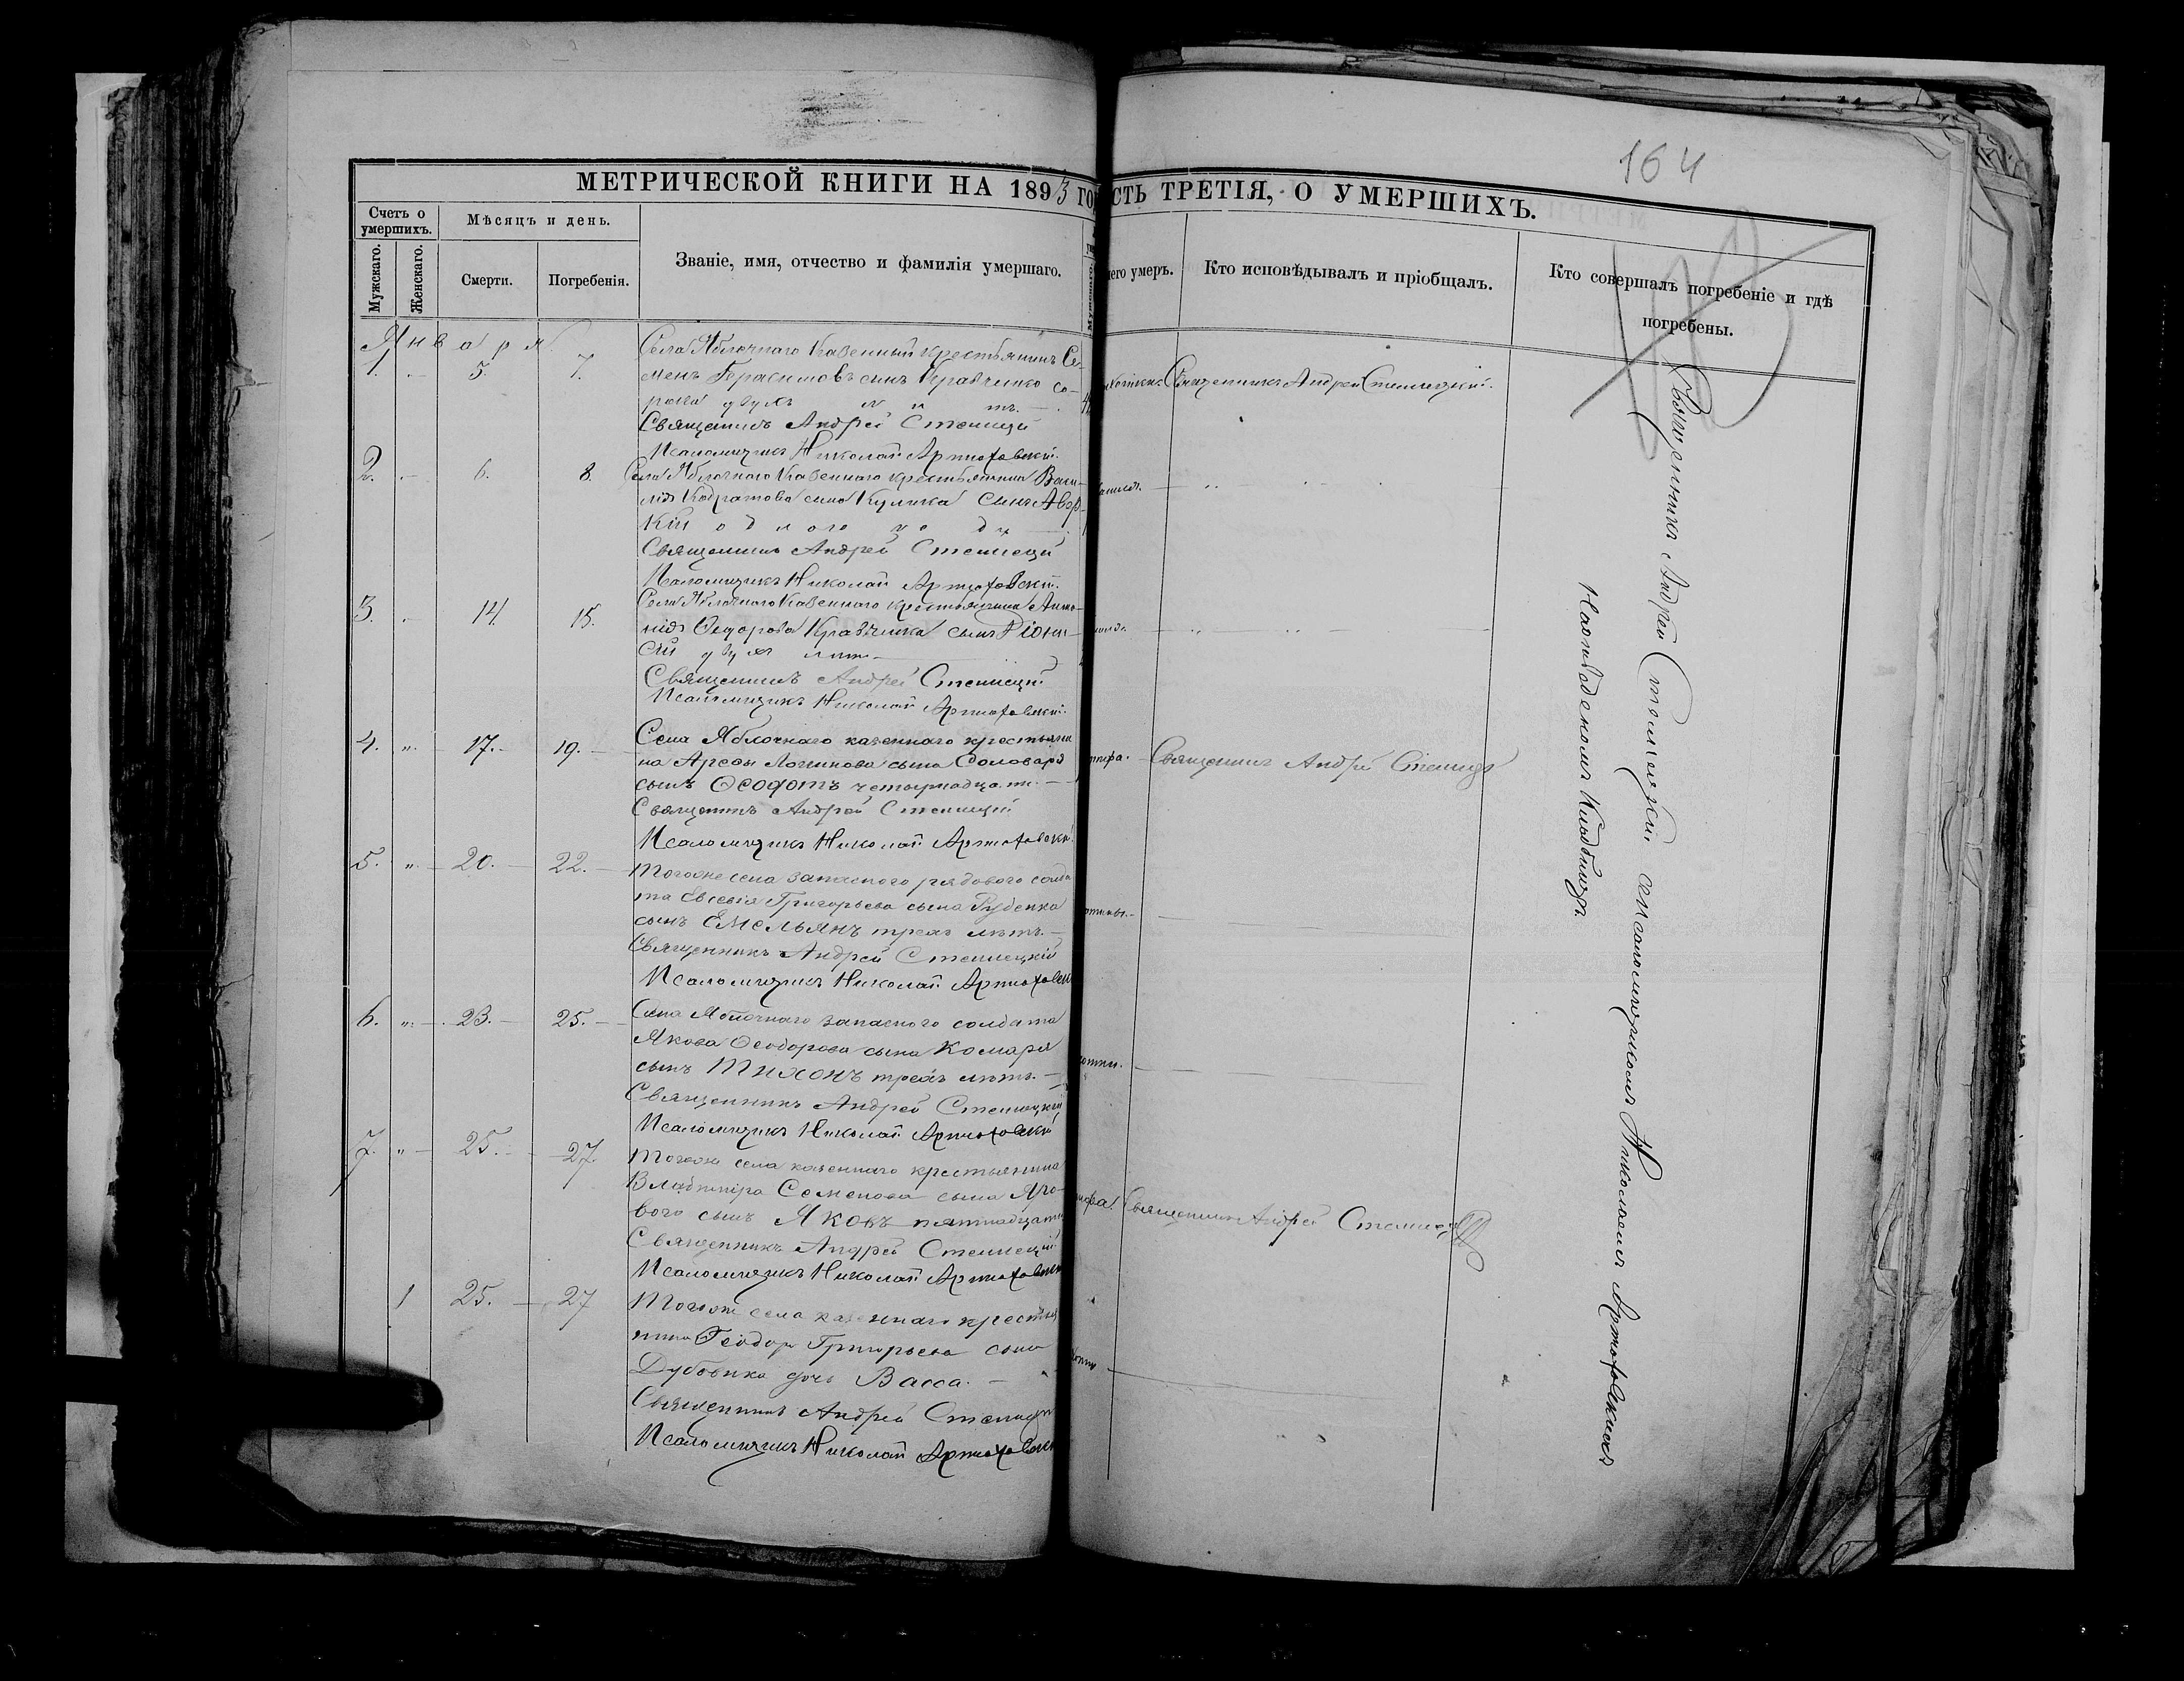 164
МЕТРИЧЕСКОЙ КНИГИ НА 1893 ГО
СТЬ ТРЕТІЯ, О УМЕРШИХЪ.
Счетъ о умершихъ.
Мужскаго.
Женскаго.
Мѣсяцъ и день.
Смерти.
Погребенія.
Званіе, имя, отчество и фамилія умершаго.
чего умеръ.
Кто исповѣдывалъ и пріобщалъ.
Кто совершалъ погребеніе и гдѣ
погребены.
Января
1. 5. 7.
Села Яблочнаго казенный крестьянинъ Се-
менъ Герасимовъ сынъ Кравченко со-
рока двухъ лѣтъ.
Священникъ Андрей Стеллецкій
Священникъ Андрей Стеллецкій
Псаломщикъ Николай Артюховскій
2. 6. 8.
Села Яблочнаго казеннаго крестьянина Васи-
лія Кодратова сына Кулика сынъ Авер-
кій одного года
Священникъ Андрей Стеллецкій
Псаломщикъ Николай Артюховскій
3. 14. 15.
Села Яблочнаго казеннаго крестьянина Анто-
нія Федорова Кравченка сынъ Діони-
сій двухъ лѣтъ
Священникъ Андрей Стеллецкій
Псаломщикъ Николай Артюховскій
4. " 17. 19.
Села Яблочнаго казеннаго крестьяни
на Арефы Логинова сына Соловаря
сынъ Ѳеофотъ четырнадцати
тифа. Священникъ Андрей Стеллецкій
Священникъ Андрей Стеллецкій
Псаломщикъ Николай Артюховскій
5. " 20. 22.
Тогоже села запаснаго рядового солда
та Евсевія Григорьева сына Руденка
сынъ Емельянъ трехъ лѣтъ.
Священникъ Андрей Стеллецкій
Псаломщикъ Николай Артюховскій
6. " 23. 25.
Села Яблочнаго запасного солдата
Якова Ѳеодорова сына Комаря
сынъ Тихонъ трехъ лѣтъ.
Священникъ Андрей Стеллецкій
Псаломщикъ Николай Артюховскій
7. " 25. 27.
Тогоже села казеннаго крестьянина
Владиміра Семенова сына Яро-
вого сынъ Яковъ пятнадцати
тифа. Священникъ Андрей Стеллецкій
Священникъ Андрей Стеллецкій
Псаломщикъ Николай Артюховскій
1 25. 27
Тогоже села казеннаго крестья
нина Ѳеодора Григорьева сына
Дубовика дочь Васса.
Священникъ Андрей Стеллецкій
Псаломщикъ Николай Артюховскій
Священникъ Андрей Стеллецкій съ псаломщикомъ Николаемъ Артюховскимъ
На отведеномъ кладбищѣ